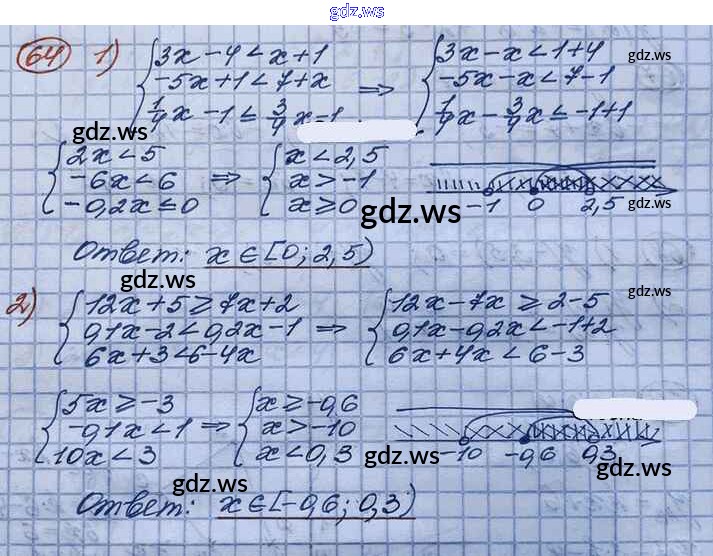 gdz.ws
64 1) { 3x - 4 < x + 1
-5x + 1 < 7 + x
1/4 x - 1 ≤ 3/4 x - 1 ⇒ { 3x - x < 1 + 4
-5x - x < 7 - 1
1/4 x - 3/4 x ≤ -1 + 1
gdz.ws
gdz.ws
{ 2x < 5
-6x < 6
-0,2x ≤ 0 ⇒ { x < 2,5
x > -1
x ≥ 0
-1 0 2,5
gdz.ws
gdz.ws
Ответ: x ∈ [0; 2,5)
gdz.ws
gdz.ws
2) { 12x + 5 ≥ 7x + 2
0,1x - 2 < 0,2x - 1
6x + 3 < 6 - 4x ⇒ { 12x - 7x ≥ 2 - 5
0,1x - 0,2x < -1 + 2
6x + 4x < 6 - 3
{ 5x ≥ -3
-0,1x < 1
10x < 3 ⇒ { x ≥ -0,6
x > -10
x < 0,3
-10 -0,6 0,3
gdz.ws
gdz.ws
gdz.ws
Ответ: x ∈ [-0,6; 0,3)